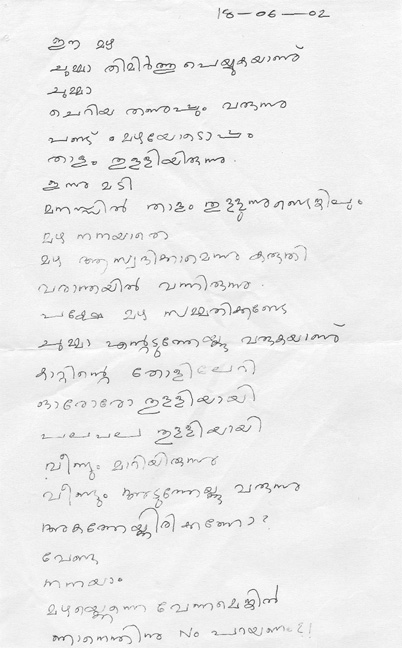 18-06-02
ഈ മഴ
ചുമ്മാ തിമിർത്തു പെയ്യുകയാണ്
ചുമ്മാ
ചെറിയ തണുപ്പും വരുന്നു
പണ്ട് മഴയോടൊപ്പം
താളം തുള്ളിയിരുന്നു.
ഇന്നു മടി
മനസ്സിൽ താളം തുള്ളുന്നുണ്ടെങ്കിലും
മഴ നനയാതെ
മഴ ആസ്വദിക്കാമെന്നു കരുതി
വരാന്തയിൽ വന്നിരുന്നു.
പക്ഷേ മഴ സമ്മതിക്കണ്ടേ
ചുമ്മാ എന്റടുത്തേയ്ക്കു വരുകയാണ്
കാറ്റിന്റെ തോളിലേറി
ഓരോരോ തുള്ളിയായി
പലപല തുള്ളിയായി
വീണ്ടും മാറിയിരുന്നു
വീണ്ടും അടുത്തേയ്ക്കു വരുന്നു
അകത്തേയ്ക്കിരിക്കണോ?
വേണ്ട
നനയാം
മഴയ്ക്കെന്നെ വേണമെങ്കിൽ
ഞാനെന്തിനു No പറയണം?!